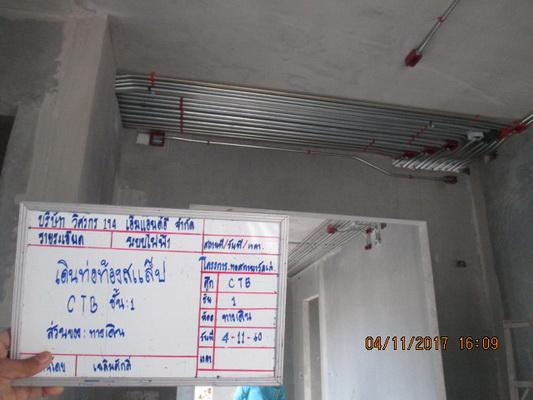 บริษัท วิศวกร 194 เอ็มแอนด์อี จำกัด
รายละเอียด ระบบไฟฟ้า
เดินท่อท้องสแล็ป
CTB ชั้น:1
ส่วนของ:ทางเดิน
เฉลิมศักดิ์
สถานที่/วันที่/เวลา
ตึก CTB
ชั้น 1
ห้อง ทางเดิน
วันที่ 4-11-60
เวลา
04/11/2017 16:09